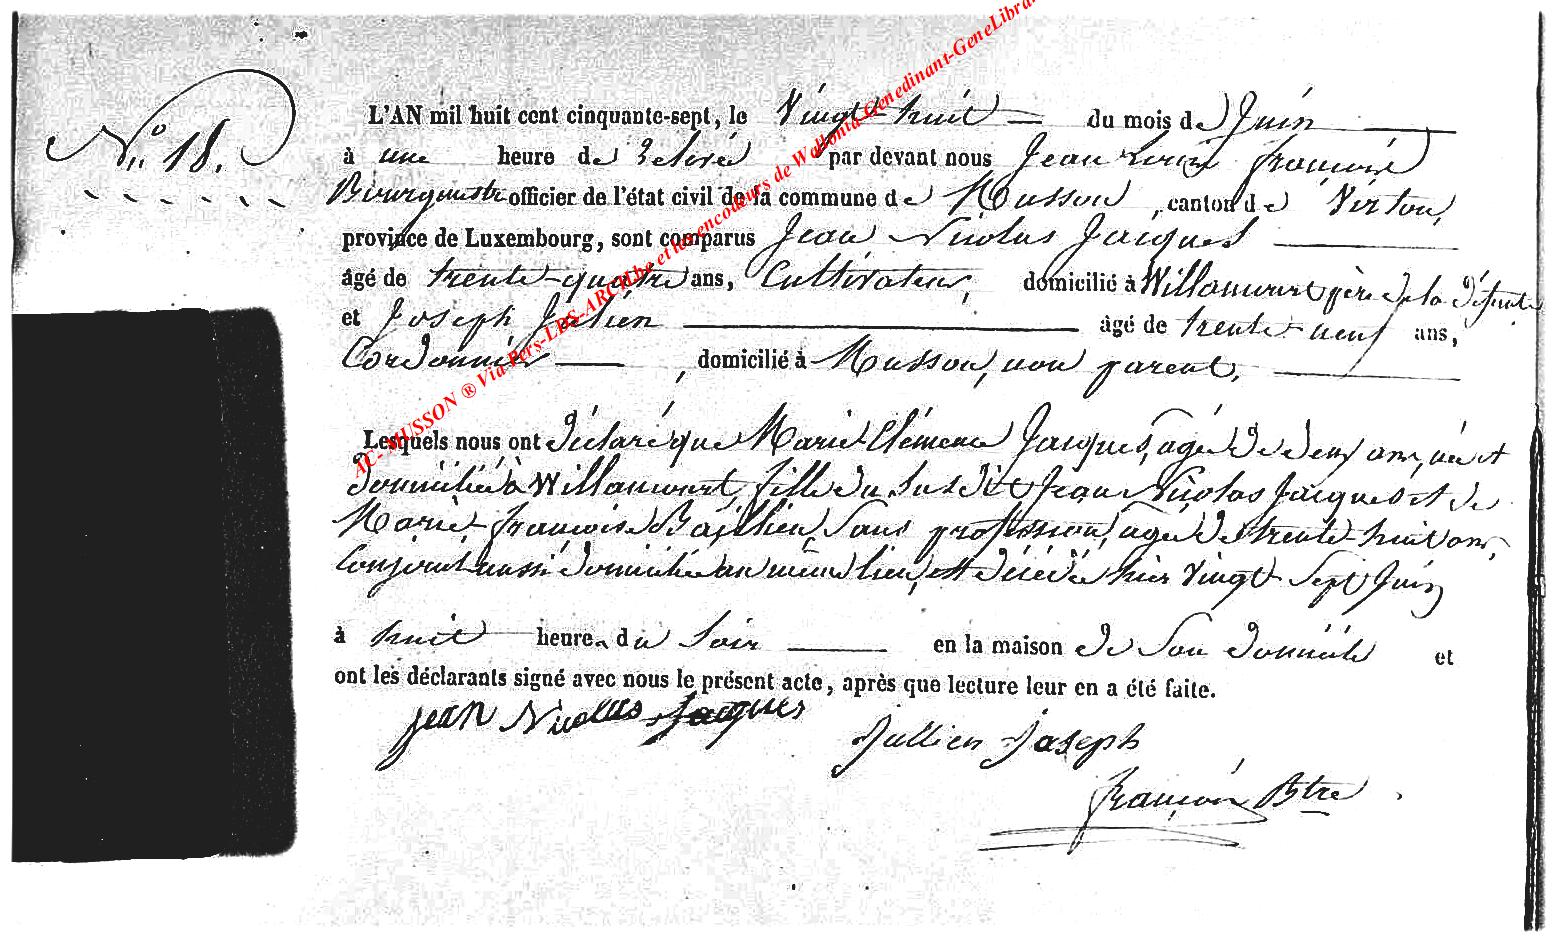 N.° 18.
L'AN mil huit cent cinquante-sept, le Vingt-huit du mois de Juin
à une heure de relevée par devant nous Jean Louis François
Bourgmestre officier de l'état civil de la commune de Musson, canton de Virton,
province de Luxembourg, sont comparus Jean Nicolas Jacques
âgé de trente-quatre ans, Cultivateur, domicilié à Willancourt père de la défunte
et Joseph Julien âgé de trente-neuf ans,
Cordonnier, domicilié à Musson, non parent,
Lesquels nous ont déclaré que Marie Clémence Jacques, agée de deux ans, née et
domiciliée à Willancourt, fille du susdit Jean Nicolas Jacques et de
Marie-Françoise Baillieu, sans profession, agée de trente-huit ans,
Conjoint aussi domiciliée au même lieu, est décédée hier vingt-sept Juin
à huit heures du soir en la maison de son domicile et
ont les déclarants signé avec nous le présent acte, après que lecture leur en a été faite.
Jean Nicolas Jacques
Jullien Joseph
François Btre
AC- MUSSON ® Via Pers-LDS-ARCH.be et les encodeurs de Wallonia-Genedinant-GeneLibra